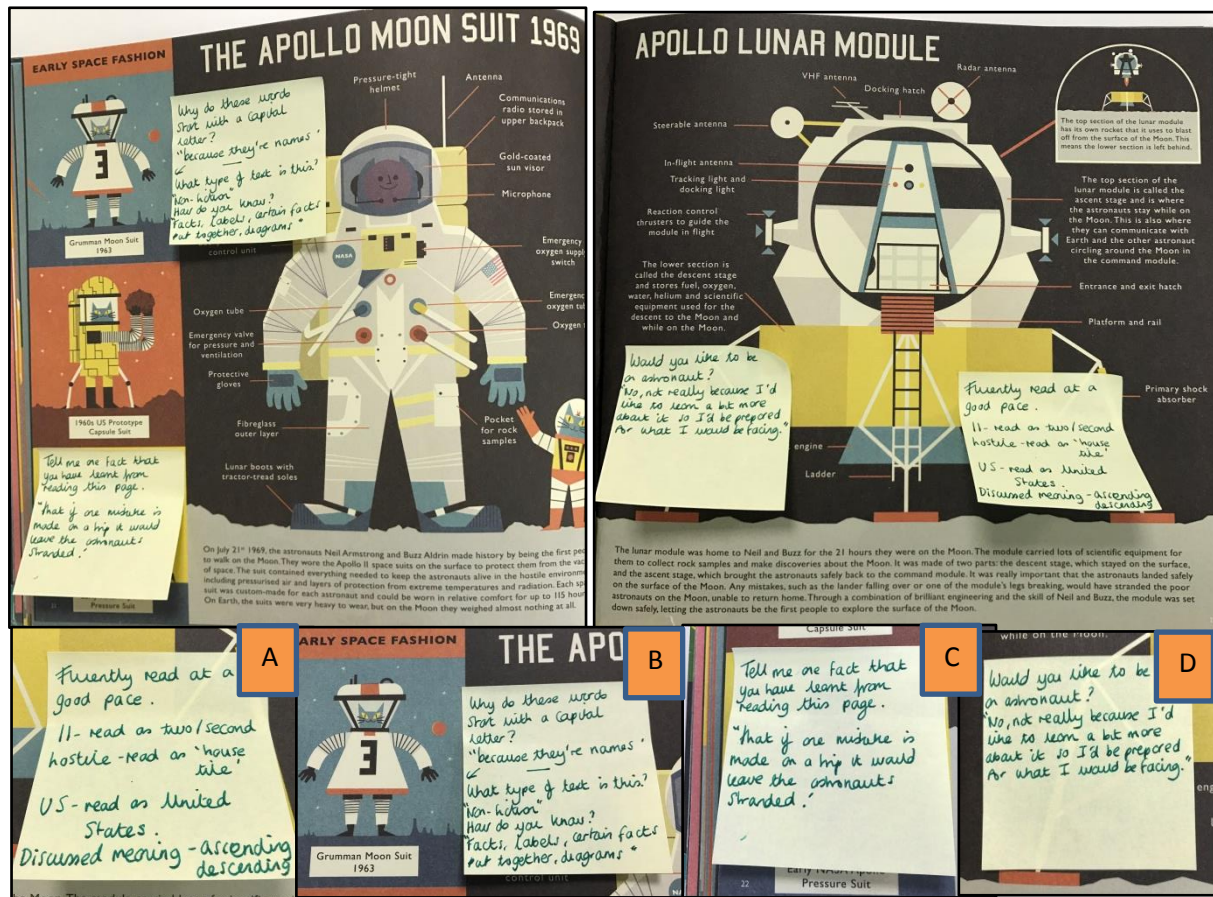 EARLY SPACE FASHION
Grumman Moon Suit
1963
1960s US Prototype
Capsule Suit
Tell me one fact that
you have learnt from
reading this page.
"that if one mistake is
made on a trip it would
leave the astronauts
stranded."
Pressure Suit
THE APOLLO MOON SUIT 1969
Why do these words
start with a capital
letter?
"because they're names"
What type of text is this?
"Non-fiction"
How do you know?
"Facts, labels, certain facts
put together, diagrams"
control unit
Pressure-tight
helmet
Antenna
Communications
radio stored in
upper backpack
Gold-coated
sun visor
Microphone
NASA
Emergency
oxygen supply
switch
Emergency
oxygen tu
Oxygen
Oxygen tube
Emergency valve
for pressure and
ventilation
Protective
gloves
Fibreglass
outer layer
Pocket
for rock
samples
Lunar boots with
tractor-tread soles
On July 21st 1969, the astronauts Neil Armstrong and Buzz Aldrin made history by being the first peo
to walk on the Moon. They wore the Apollo 11 space suits on the surface to protect them from the vac
of space. The suit contained everything needed to keep the astronauts alive in the hostile environme
including pressurised air and layers of protection from extreme temperatures and radiation. Each sp
suit was custom-made for each astronaut and could be worn in relative comfort for up to 115 hour
On Earth, the suits were very heavy to wear, but on the Moon they weighed almost nothing at all.
APOLLO LUNAR MODULE
VHF antenna
Docking hatch
Radar antenna
Steerable antenna
In-flight antenna
Tracking light and
docking light
Reaction control
thrusters to guide the
module in flight
The lower section is
called the descent stage
and stores fuel, oxygen,
water, helium and scientific
equipment used for the
descent to the Moon and
while on the Moon.
The top section of the lunar module
has its own rocket that it uses to blast
off from the surface of the Moon. This
means the lower section is left behind.
The top section of the
lunar module is called the
ascent stage and is where
the astronauts stay while on
the Moon. This is also where
they can communicate with
Earth and the other astronaut
circling around the Moon in
the command module.
Entrance and exit hatch
Platform and rail
Primary shock
absorber
engine
Ladder
Would you like to be
an astronaut?
"No, not really because I'd
like to learn a bit more
about it so I'd be prepared
for what I would be facing."
Fluently read at a
good pace.
11- read as two/second
hostile-read as 'house
tile'
US-read as United
States.
Discussed meaning - ascending
descending
The lunar module was home to Neil and Buzz for the 21 hours they were on the Moon. The module carried lots of scientific equipment for
them to collect rock samples and make discoveries about the Moon. It was made of two parts: the descent stage, which stayed on the surface,
and the ascent stage, which brought the astronauts safely back to the command module. It was really important that the astronauts landed safely
on the surface of the Moon. Any mistakes, such as the lander falling over or one of the module's legs breaking, would have stranded the poor
astronauts on the Moon, unable to return home. Through a combination of brilliant engineering and the skill of Neil and Buzz, the module was set
down safely, letting the astronauts be the first people to explore the surface of the Moon.
A
Fluently read at a
good pace.
11- read as two/second
hostile-read as 'house
tile'
US- read as United
States.
Discussed meaning - ascending
descending
B
EARLY SPACE FASHION
THE APO
3
Grumman Moon Suit
1963
Why do these words
start with a capital
letter?
"because they're names"
What type of text is this?
"Non-fiction"
How do you know?
"Facts, labels, certain facts
put together, diagrams"
control unit
C
Capsule Suit
Tell me one fact that
you have learnt from
reading this page.
"that if one mistake is
made on a trip it would
leave the astronauts
stranded."
22
Early NASA Apollo
Pressure Suit
D
while on the Moon.
Would you like to be
an astronaut?
"No, not really because I'd
like to learn a bit more
about it so I'd be prepared
for what I would be facing."
eng